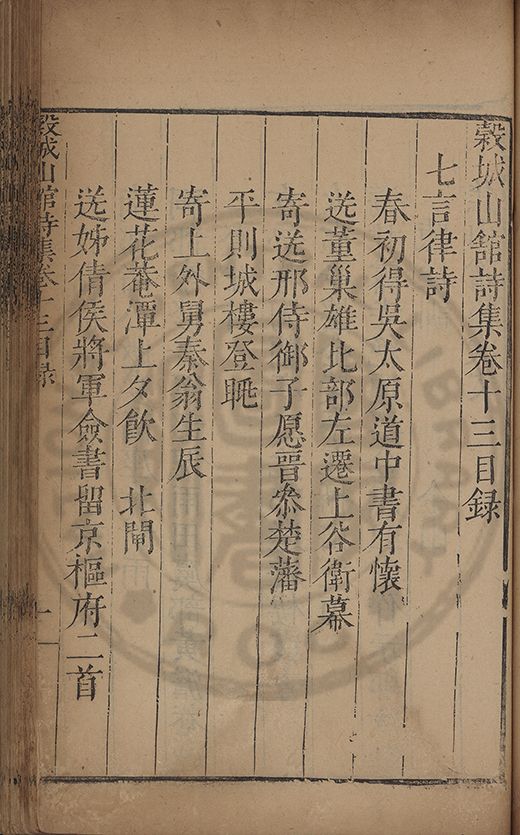 穀城山館詩集卷十三目録
七言律詩
春初得吳太原道中書有懷
送董巢雄比部左遷上谷衛幕
寄送邢侍御子愿晉叅楚藩
平則城樓登眺
寄上外舅秦翁生辰
蓮花菴潭上夕飲 北閘
送姊倩侯將軍僉書留京樞府二首
穀城山館詩集卷十三目録
一